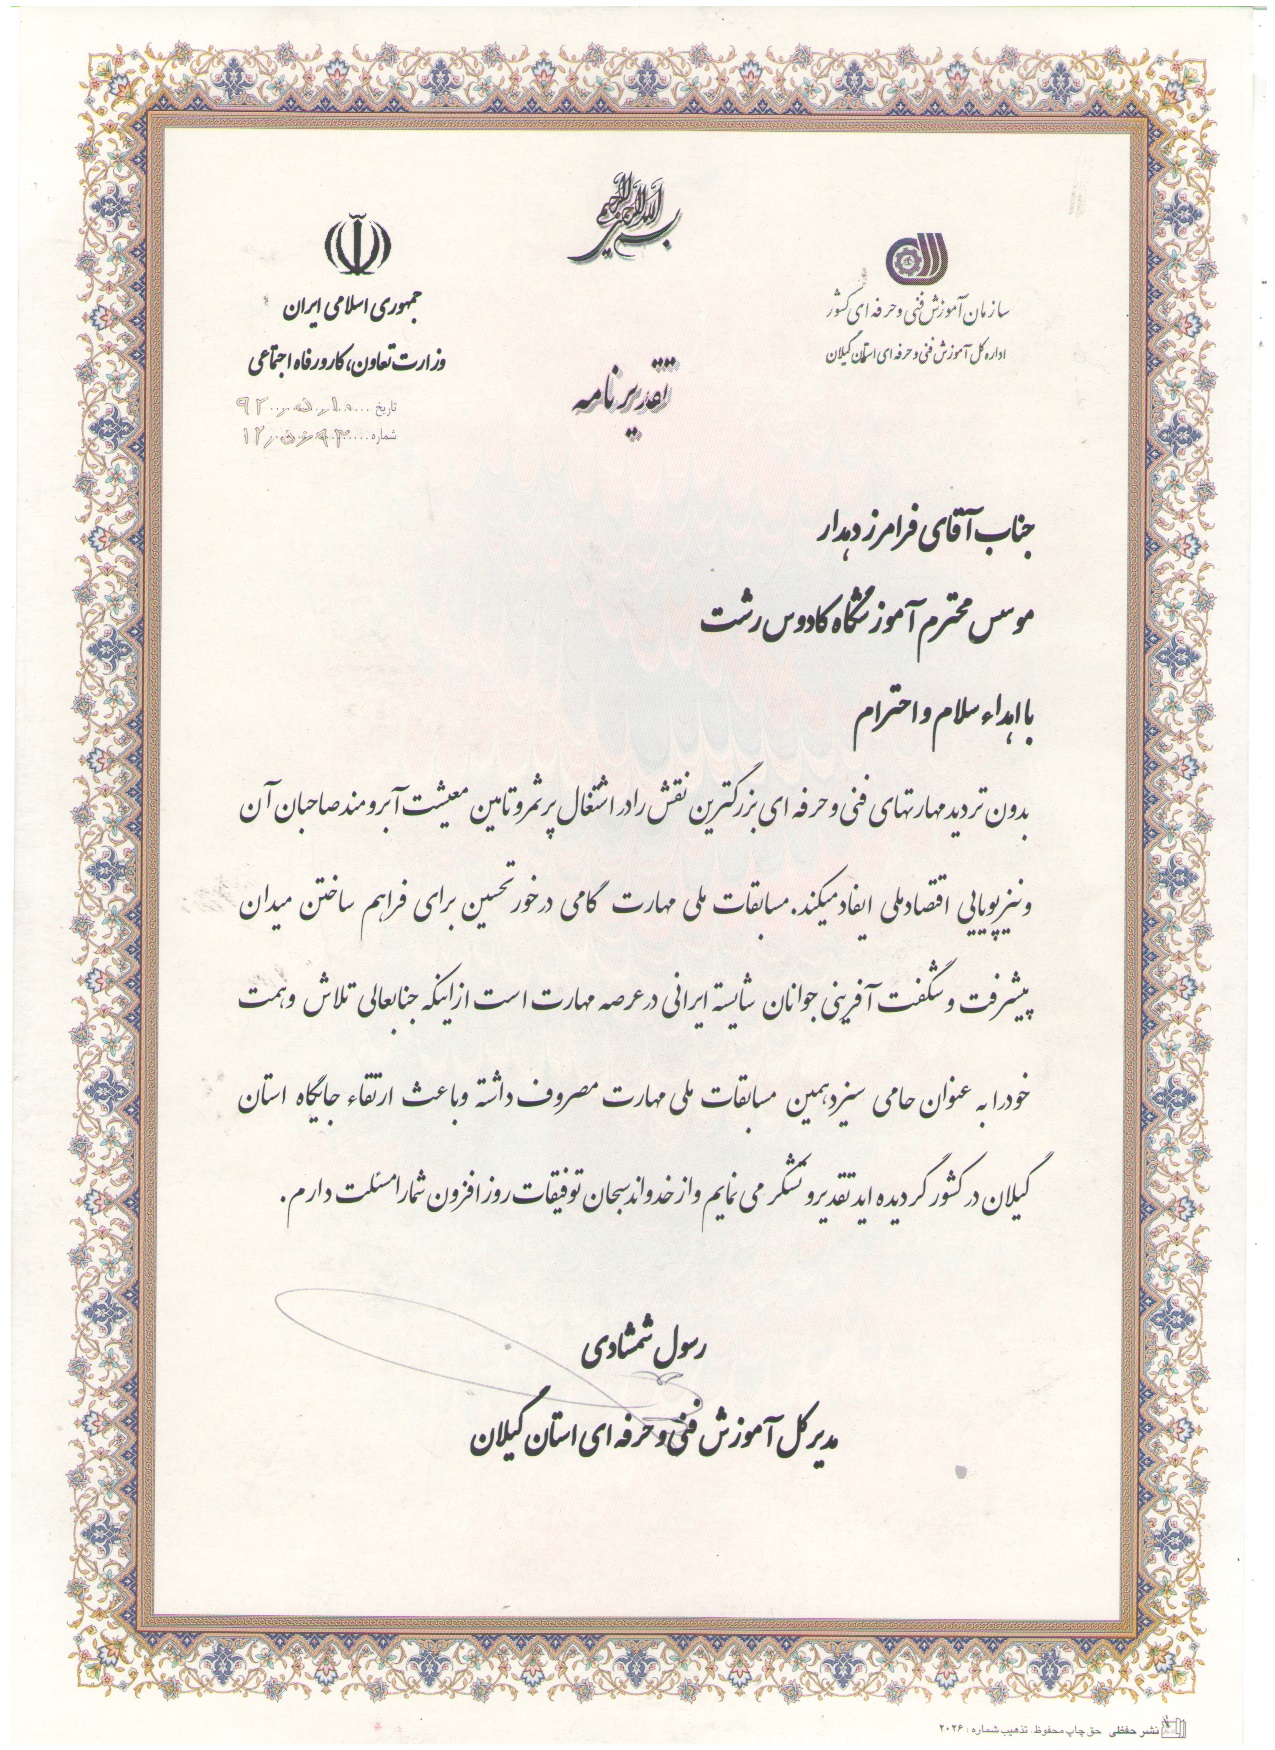 بسم الله الرحمن الرحیم
سازمان آموزش فنی و حرفه ای کشور
اداره کل آموزش فنی و حرفه ای استان گیلان
جمهوری اسلامی ایران
وزارت تعاون، کار و رفاه اجتماعی
تاریخ ۹۲،۵،۱۰
شماره
تقدیر نامه
جناب آقای فرامرز دهدار
موسس محترم آموزشگاه کادوس رشت
با اهداء سلام و احترام
بدون تردید مهارتهای فنی و حرفه ای بزرگترین نقش را در اشتغال پر ثمر و تامین معیشت آبرومند صاحبان آن
و نیز پویایی اقتصاد ملی ایفاد میکند. مسابقات ملی مهارت گامی در خور تحسین برای فراهم ساختن میدان
پیشرفت و شگفت آفرینی جوانان شایسته ایرانی در عرصه مهارت است از اینکه جنابعالی تلاش و همت
خود را به عنوان حامی سیزدهمین مسابقات ملی مهارت مصروف داشته و باعث ارتقاء جایگاه استان
گیلان در کشور گردیده اید تقدیر و تشکر می نمایم و از خداوند سبحان توفیقات روز افزون شما را مسئلت دارم.
رسول شمشادی
مدیر کل آموزش فنی و حرفه ای استان گیلان
نشر حفظی حق چاپ محفوظ، تذهیب شماره : ۲۰۲۶